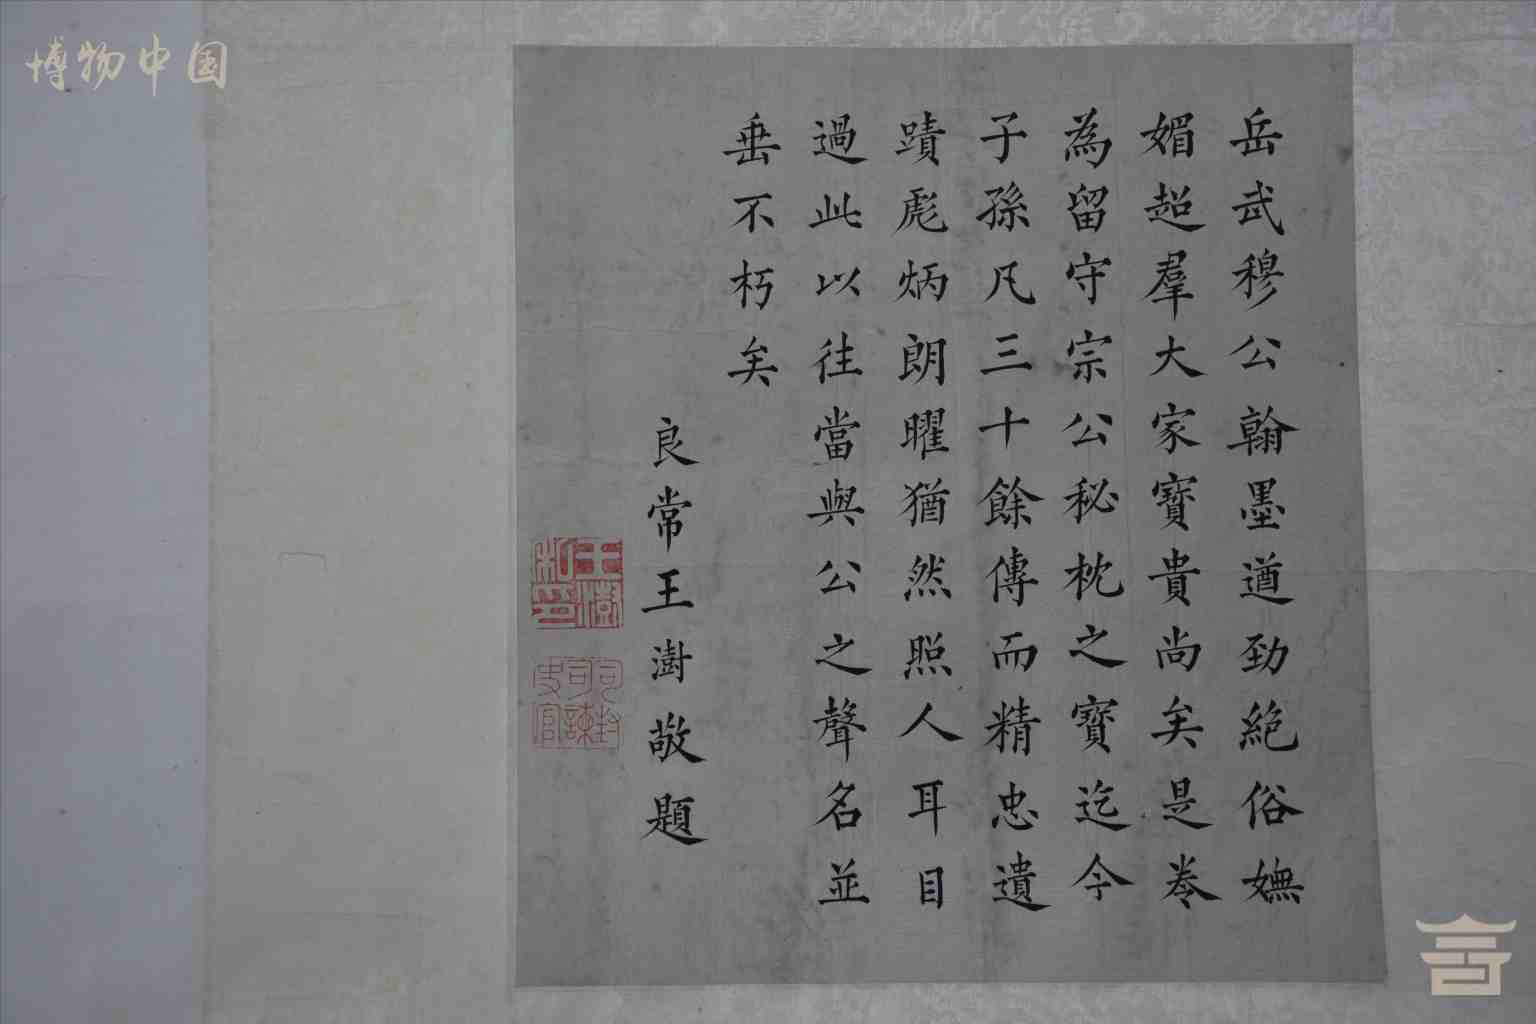 博物中国
岳武穆公翰墨遒劲絕俗嫵
媚超羣大家寳貴尚矣是卷
為留守宗公秘枕之寳迄今
子孫凡三十餘傳而精忠遺
蹟彪炳朗曜猶然照人耳目
過此以往當與公之聲名並
垂不朽矣
良常王澍敬題
王澍私印